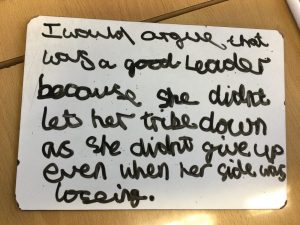 I would argue that
was a good Leader
because she didn't
lets her tribe down
as she didn't give up
even when her side was
loseing.